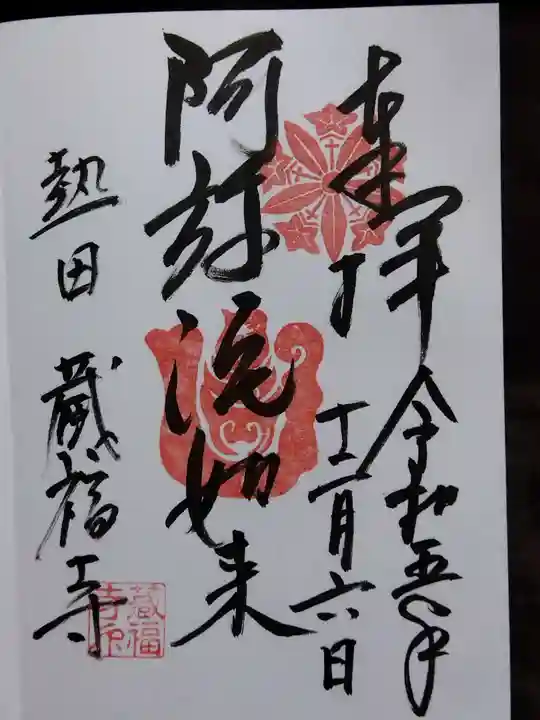 奉拝
令和五年
十二月六日
阿弥陀如来
熱田 蔵福寺
蔵福
寺印